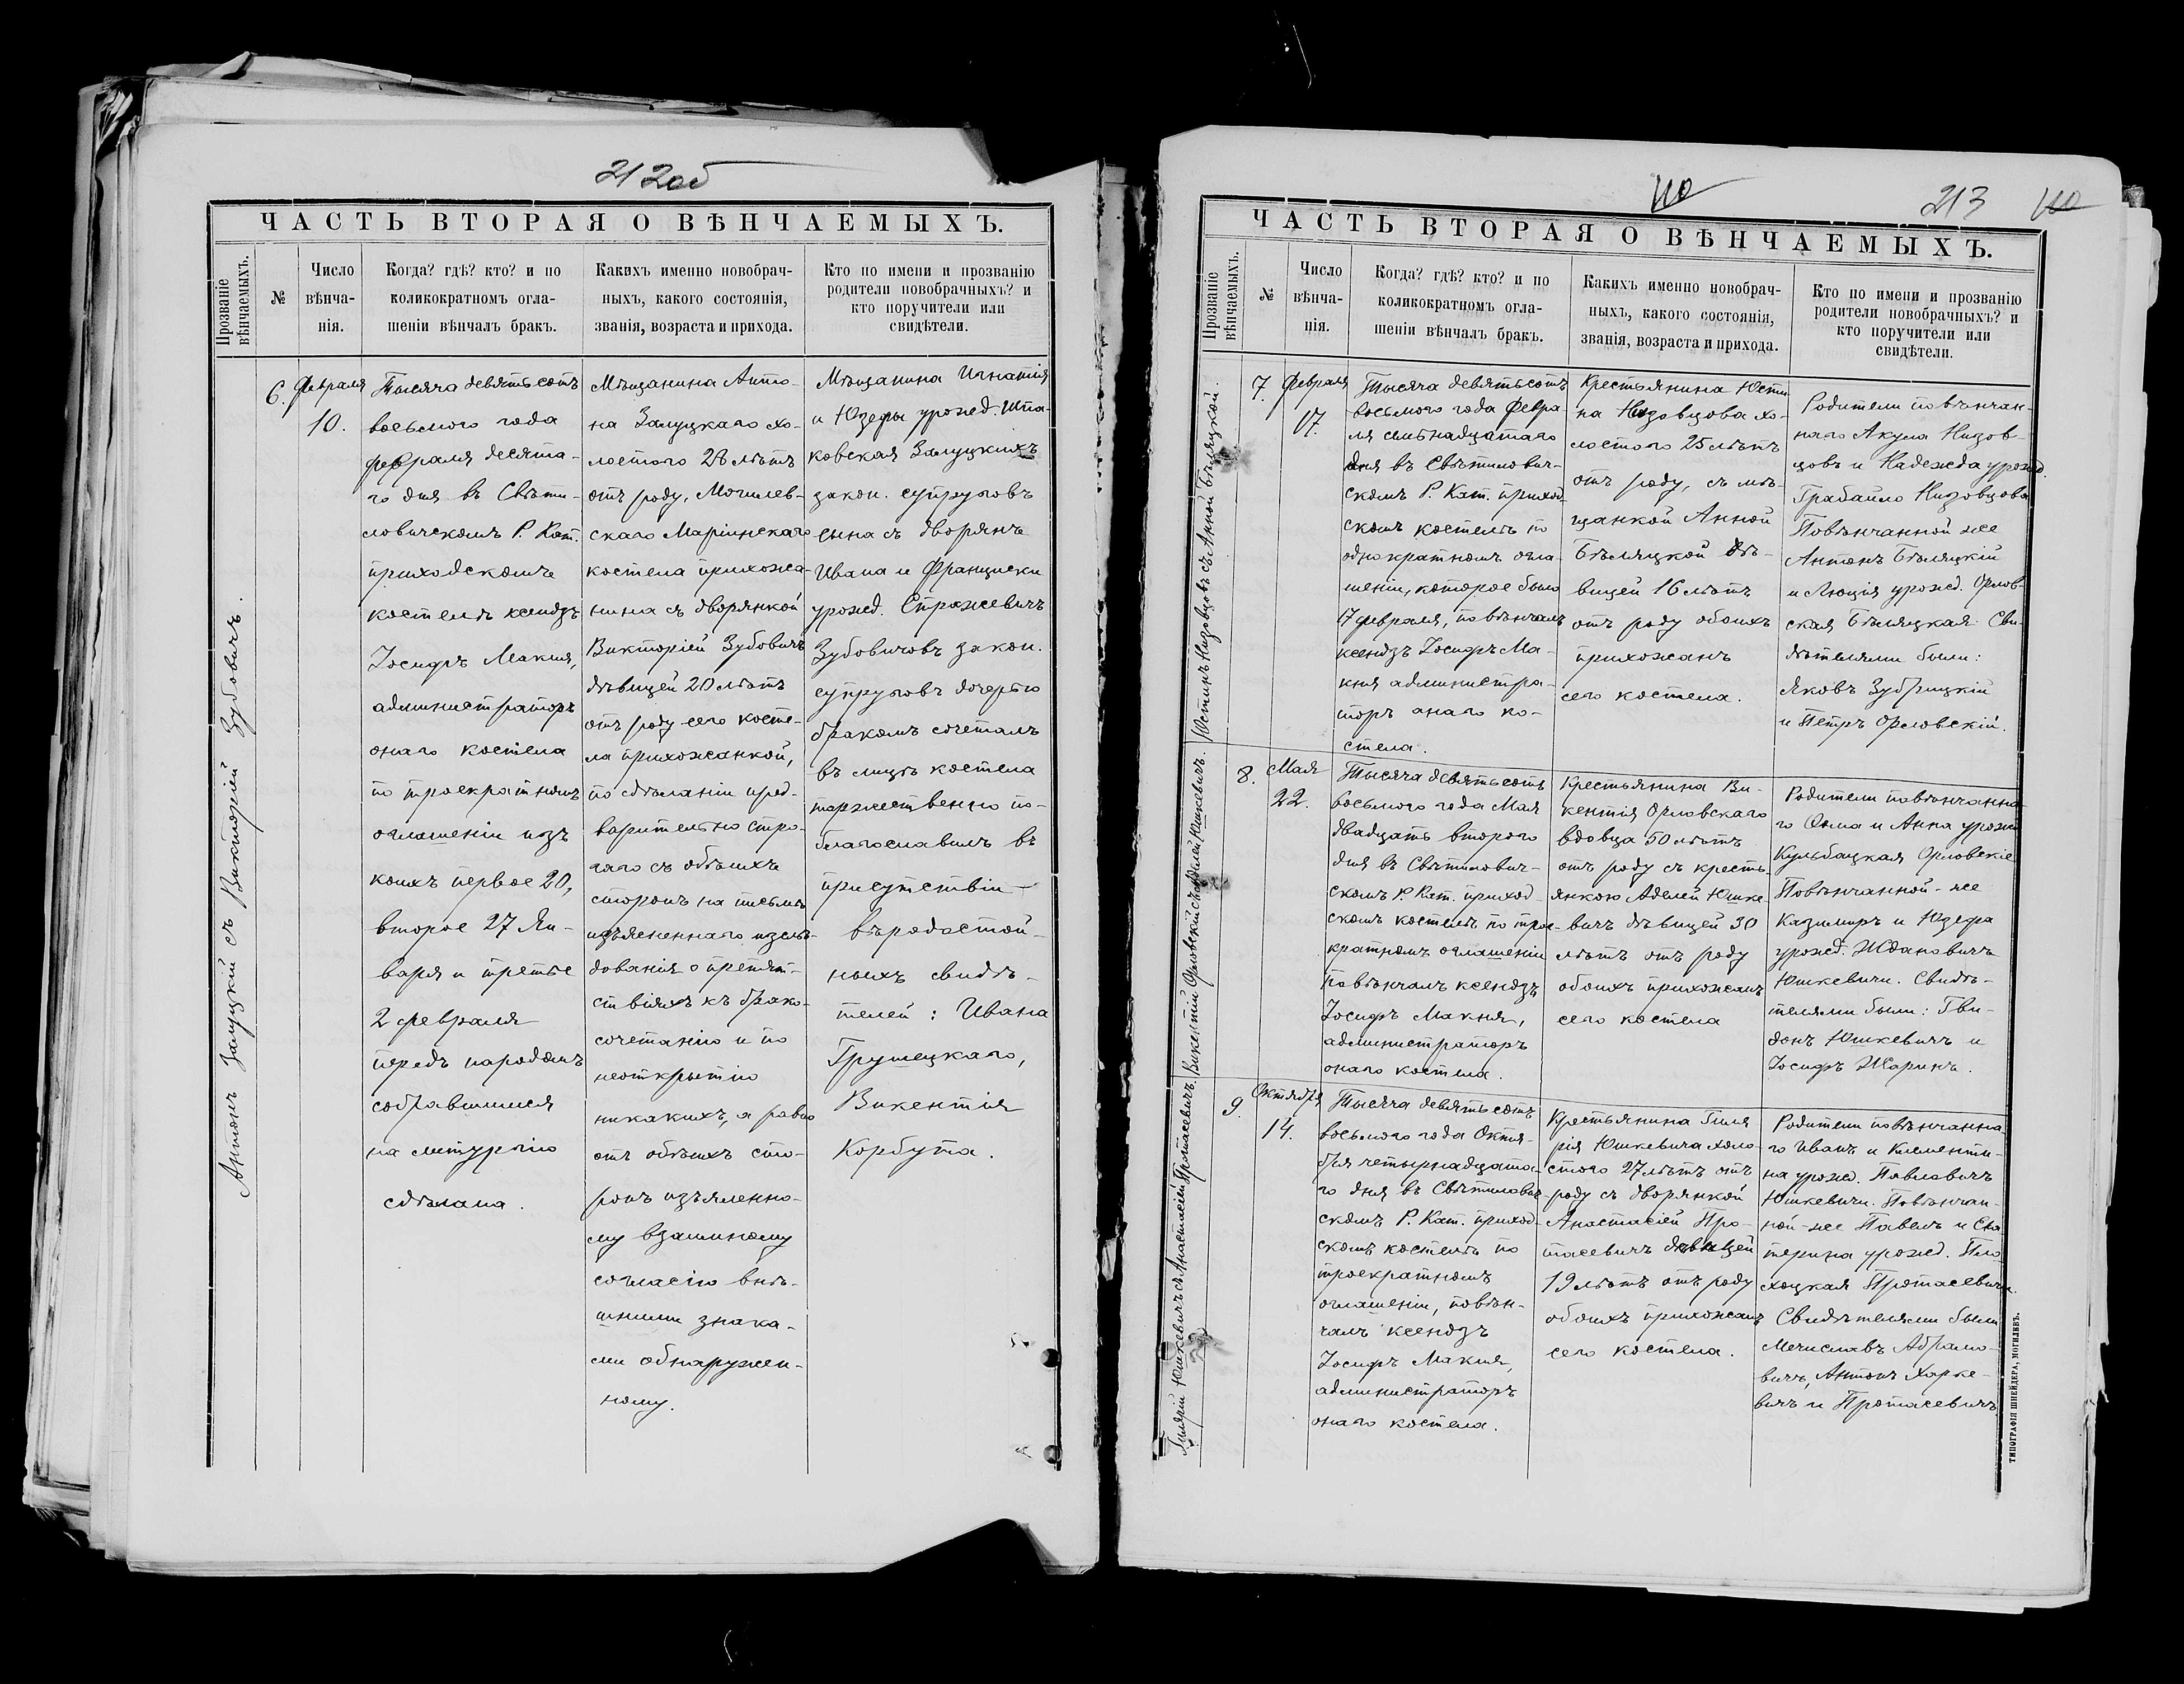 212об
ЧАСТЬ ВТОРАЯ О ВѢНЧАЕМЫХЪ.
Прозваніе вѣнчаемыхъ.
№
Число
вѣнча-
нія.
Когда? гдѣ? кто? и по
коликократномъ огла-
шеніи вѣнчалъ бракъ.
Какихъ именно новобрач-
ныхъ, какого состоянія,
званія, возраста и прихода.
Кто по имени и прозванію
родители новобрачныхъ? и
кто поручители или
свидѣтели.
Антонъ Залуцкій съ Викторіей Зубовичъ.
6.
Февраля
10.
Тысяча девятьсотъ
восьмого года
февраля десята-
го дня въ Свѣти-
ловичскомъ Р. Кат.
приходскомъ
костелѣ ксендзъ
Іосифъ Макня,
администраторъ
онаго костела
по троекратномъ
оглашеніи изъ
коихъ первое 20,
второе 27 Ян-
варя и третье
2 февраля
передъ народомъ
собравшимся
на литургію
сдѣлана.
Мѣщанина Анто-
на Залуцкаго хо-
лостого 28 лѣтъ
отъ роду, Могилев-
скаго Маріинскаго
костела прихожа-
нина съ дворянкой
Викторіей Зубовичъ
дѣвицей 20 лѣтъ
отъ роду сего косте-
ла прихожанкой,
по сдѣланіи пред-
варительно стро-
гаго съ обѣихъ
сторонъ на письмѣ
изъясненнаго изслѣ-
дованія о препят-
ствіяхъ къ брако-
сочетанію и по
неоткрытію
никакихъ, а равно
отъ обѣихъ сто-
ронъ изъяленно-
му взаимному
согласію внѣ-
шними знака-
ми обнаружен-
ному.
Мѣщанина Игнатія
и Юзефы урожд. Шпа-
ковская Залуцкихъ
закон. супруговъ
сына съ дворянъ
Ивана и Франциски
урожд. Стражевичъ
Зубовичовъ закон.
супруговъ дочерью
бракомъ сочеталъ
въ лицѣ костела
торжественно по-
благословилъ въ
присутствіи
вѣродостой-
ныхъ свидѣ-
телей: Ивана
Грушецкаго,
Викентія
Корбута.
110
213 110
ЧАСТЬ ВТОРАЯ О ВѢНЧАЕМЫХЪ.
Прозваніе вѣнчаемыхъ.
№
Число
вѣнча-
нія.
Когда? гдѣ? кто? и по
коликократномъ огла-
шеніи вѣнчалъ бракъ.
Какихъ именно новобрач-
ныхъ, какого состоянія,
званія, возраста и прихода.
Кто по имени и прозванію
родители новобрачныхъ? и
кто поручители или
свидѣтели.
Юстинъ Низовцовъ съ Анной Бѣляцкой.
7.
Февраля
17.
Тысяча девятьсотъ
восьмого года Февра
ля семнадцатаго
дня въ Свѣтилович-
скомъ Р. Кат. приход-
скомъ костелѣ по
однократномъ огла-
шеніи, которое было
17 февраля, повѣнчалъ
ксендзъ Іосифъ Ма-
кня администра-
торъ онаго ко-
стела.
Крестьянина Юсти
на Низовцова хо-
лостого 25 лѣтъ
отъ роду, съ мѣ-
щанкой Анной
Бѣляцкой дѣ-
вицей 16 лѣтъ
отъ роду обоихъ
прихожанъ
сего костела.
Родители повѣнчан-
наго Акула Низов-
цовъ и Надежда урожд.
Грабайло Низовцова
Повѣнчанной же
Антонъ Бѣляцкій
и Люція урожд. Орлов-
ская Бѣляцкая. Сви-
дѣтелями были:
Яковъ Зубрицкій
и Петръ Орловскій.
Викентій Орловскій съ Аделей Юшкевичъ.
8.
Мая
22.
Тысяча девятьсотъ
восьмого года Мая
двадцать второго
дня въ Свѣтилович-
скомъ Р. Кат. приход-
скомъ костелѣ по трое-
кратномъ оглашеніи
повѣнчалъ ксендзъ
Іосифъ Макня,
администраторъ
онаго костела.
Крестьянина Ви-
кентія Орловскаго
вдовца 50 лѣтъ
отъ роду съ кресть-
янкою Аделей Юшке-
вичъ дѣвицей 30
лѣтъ отъ роду
обоихъ прихожанъ
сего костела
Родители повѣнчанна
го Ѳома и Анна урожд.
Кульбацкая Орловскіе
Повѣнчанной-же
Казимиръ и Юзефа
урожд. Ждановичъ
Юшкевичи. Свидѣ-
телями были: Гви-
донъ Юшкевичъ и
Іосифъ Жаринъ.
Гилярій Юшкевичъ съ Анастасіей Протасевичъ
9.
Октября
14.
Тысяча девятьсотъ
восьмого года Октя-
бря четырнадцата-
го дня въ Свѣтилович-
скомъ Р. Кат. приход-
скомъ костелѣ по
троекратномъ
оглашеніи, повѣн-
чалъ ксендзъ
Іосифъ Макня,
администраторъ
онаго костела.
Крестьянина Гиля
рія Юшкевича холо-
стого 27 лѣтъ отъ
роду съ дворянкой
Анастасіей Про-
тасевичъ дѣвицей
19 лѣтъ отъ роду
обоихъ прихожанъ
сего костела.
Родители повѣнчанна
го Иванъ и Клементи-
на урожд. Павловичъ
Юшкевичи. Повѣнчан-
ной-же Павелъ и Ека
терина урожд. Пло
хоцкая Протасевичи.
Свидѣтелями были
Мечиславъ Абрамо-
вичъ, Антонъ Харке-
вичъ и Протасевичъ
ТИПОГРАФІЯ ШНЕЙДЕРА, МОГИЛЕВЪ.